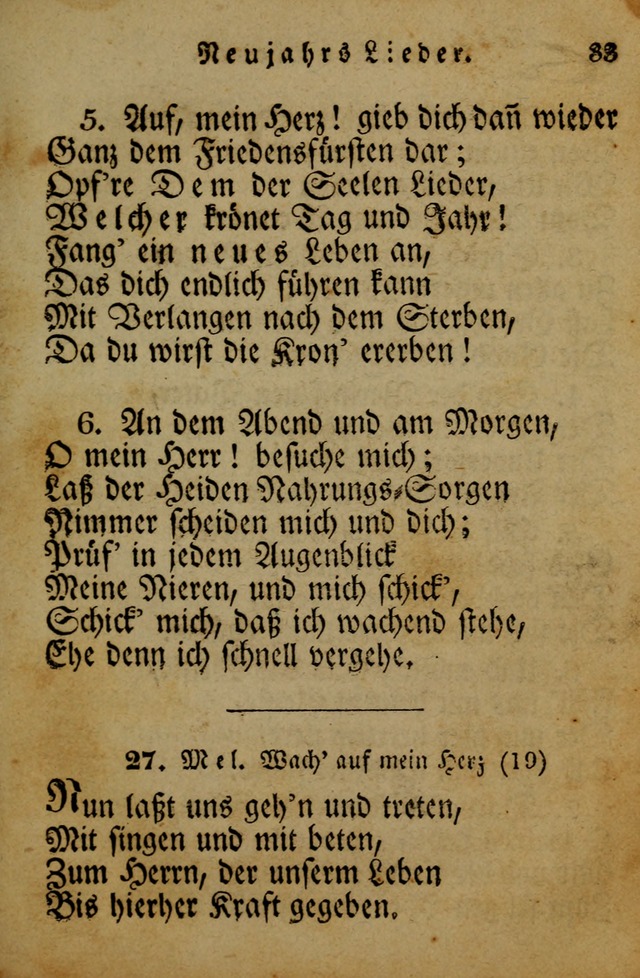 Neujahrs Lieder. 33
5. Auf, mein Herz! gieb dich dañ wieder
Ganz dem Friedensfürsten dar;
Opf're Dem der Seelen Lieder,
Welcher krönet Tag und Jahr!
Fang' ein neues Leben an,
Das dich endlich führen kann
Mit Verlangen nach dem Sterben,
Da du wirst die Kron' ererben!
6. An dem Abend und am Morgen,
O mein Herr! besuche mich;
Laß der Heiden Nahrungs-Sorgen
Nimmer scheiden mich und dich;
Prüf' in jedem Augenblick
Meine Nieren, und mich schick',
Schick' mich, daß ich wachend stehe,
Ehe denn ich schnell vergehe.
27. Mel. Wach' auf mein Herz (19)
Nun laßt uns geh'n und treten,
Mit singen und mit beten,
Zum Herrn, der unserm Leben
Bis hierher Kraft gegeben.